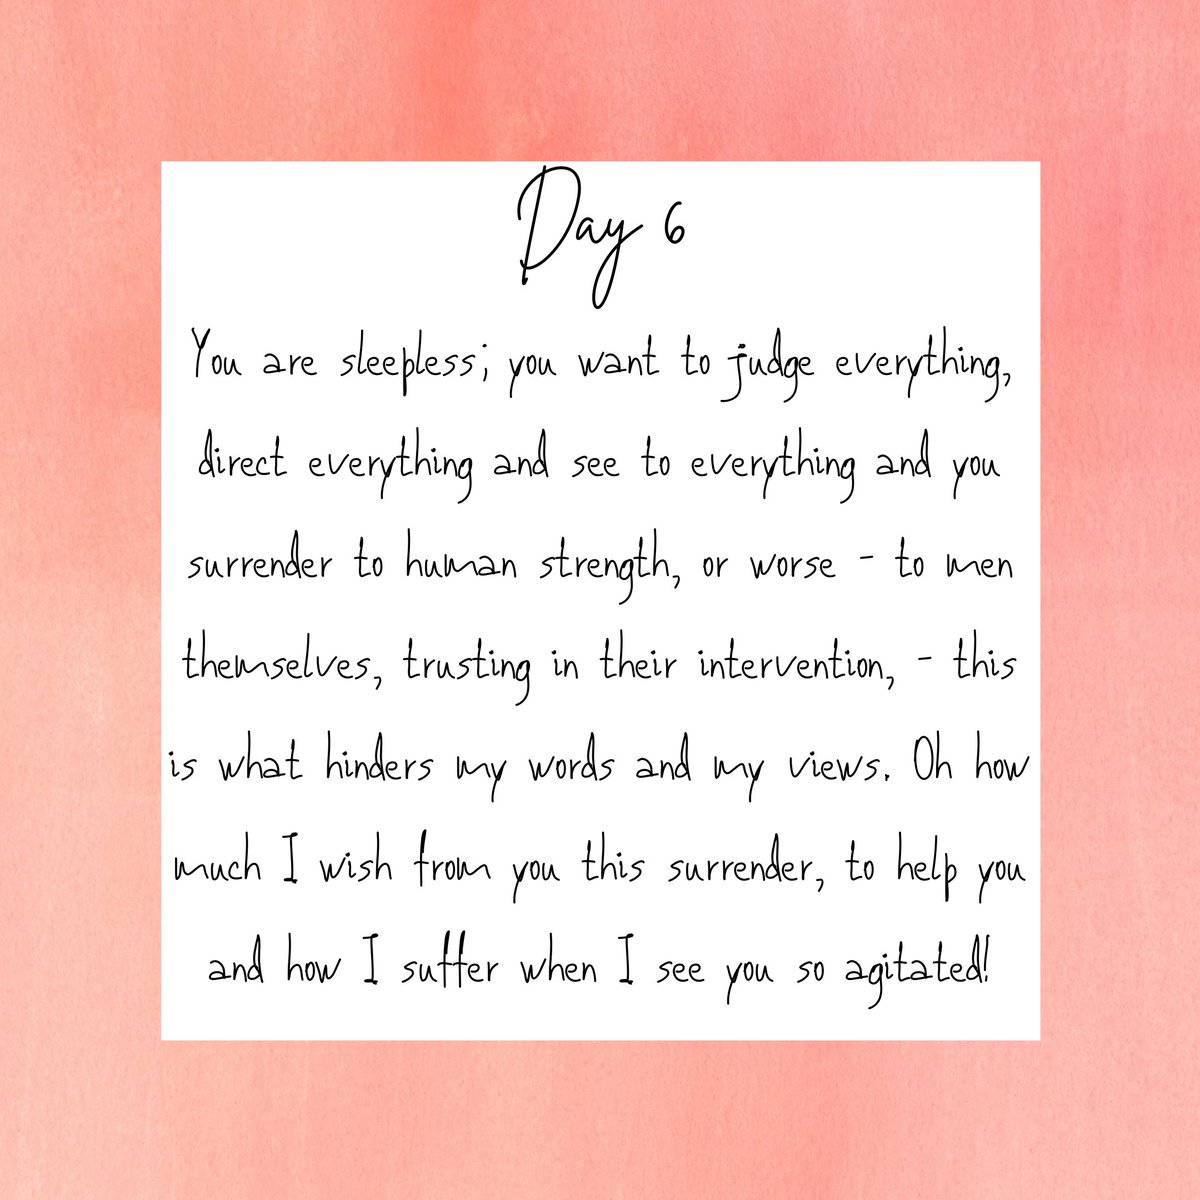 Day 6
You are sleepless; you want to judge everything,
direct everything and see to everything and you
surrender to human strength, or worse - to men
themselves, trusting in their intervention, - this
is what hinders my words and my views. Oh how
much I wish from you this surrender, to help you
and how I suffer when I see you so agitated!